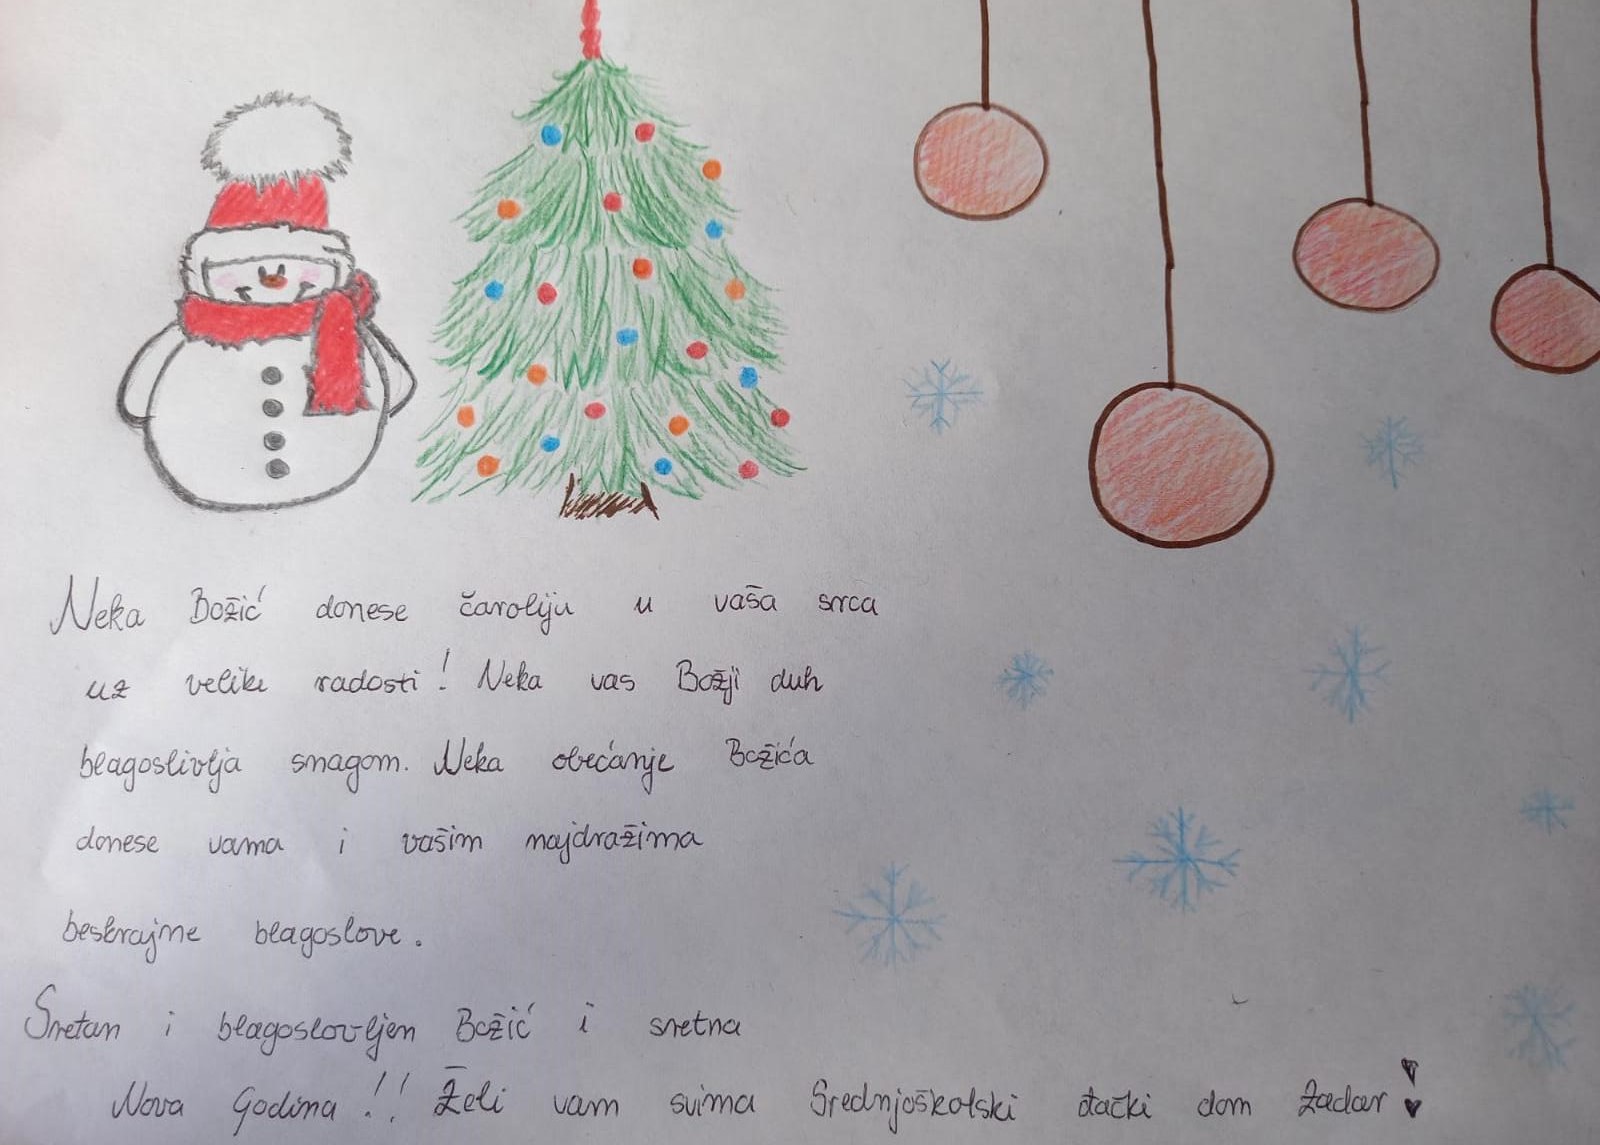 Neka Božić donese čaroliju u vaša srca
uz velike radosti! Neka vas Božji duh
blagoslivlja snagom. Neka obećanje Božića
donese vama i vašim najdražima
beskrajne blagoslove.
Sretan i blagoslovljen Božić i sretna
Nova Godina!! Želi vam svima Srednjoškolski đački dom Zadar!